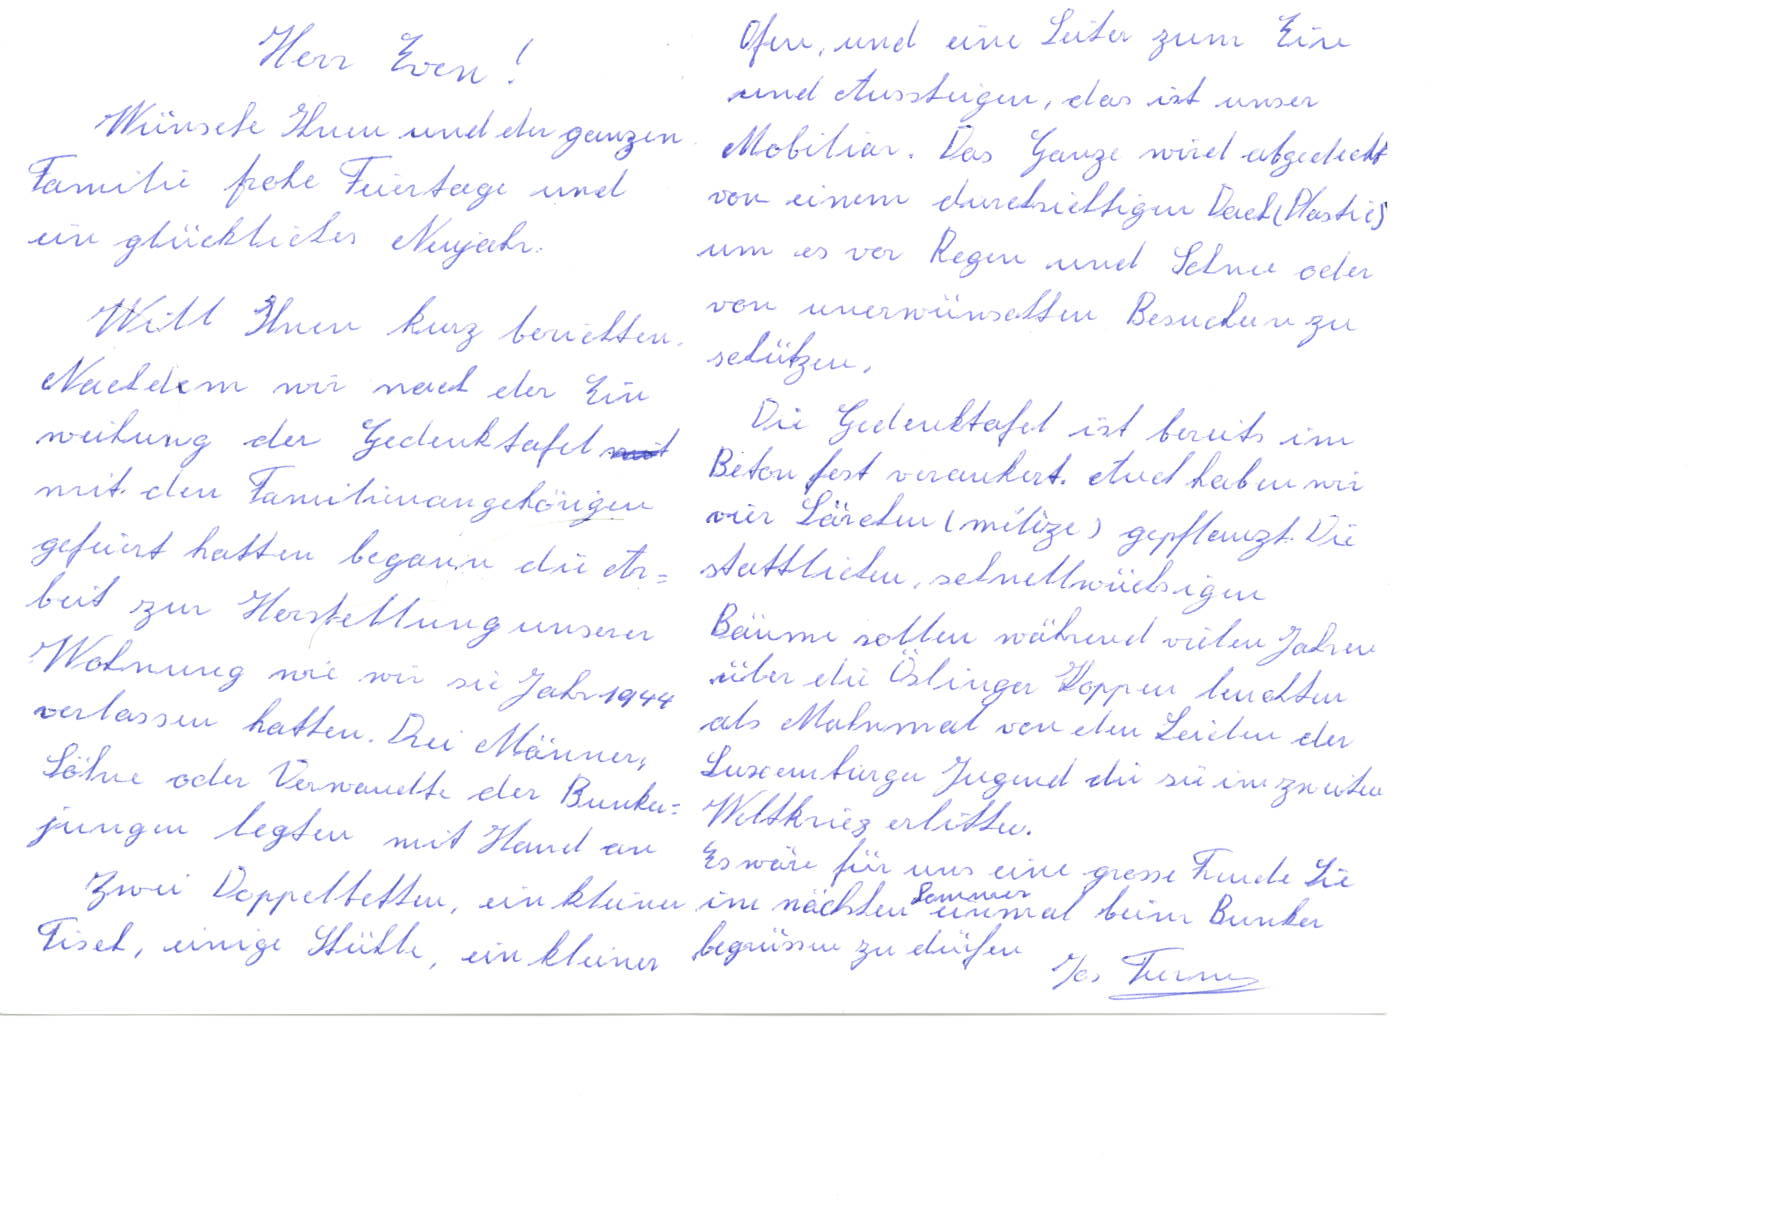 Herr Even !
Wünsche Ihnen und der ganzen
Familie frohe Feiertage und
ein glückliches Neujahr.
Will Ihnen kurz berichten.
Nachdem wir nach der Ein
weihung der Gedenktafel
mit den Familienangehörigen
gefeiert hatten begann die Ar=
beit zur Herstellung unserer
Wohnung wie wir sie Jahr 1944
verlassen hatten. Drei Männer,
Söhne oder Verwandte der Bunker=
jungen legten mit Hand an
Zwei Doppelbetten, ein kleiner
Tisch, einige Stühle, ein kleiner
Ofen, und eine Leiter zum Ein
und Aussteigen, das ist unser
Mobiliar. Das Ganze wird abgedeckt
von einem durchsichtigen Dach (Plastic)
um es vor Regen und Schnee oder
von unerwünschten Besuchern zu
schützen.
Die Gedenktafel ist bereits im
Beton fest verankert. Auch haben wir
vier Lärchen (mélèze) gepflanzt. Die
stattlichen, schnellwüchsigen
Bäume sollen während vielen Jahren
über die Öslinger Koppen leuchten
als Mahnmal von den Leiden der
Luxemburger Jugend die sie im zweiten
Weltkrieg erlitten.
Es wäre für uns eine grosse Freude Sie
im nächsten Sommer einmal beim Bunker
begrüssen zu dürfen
Jos